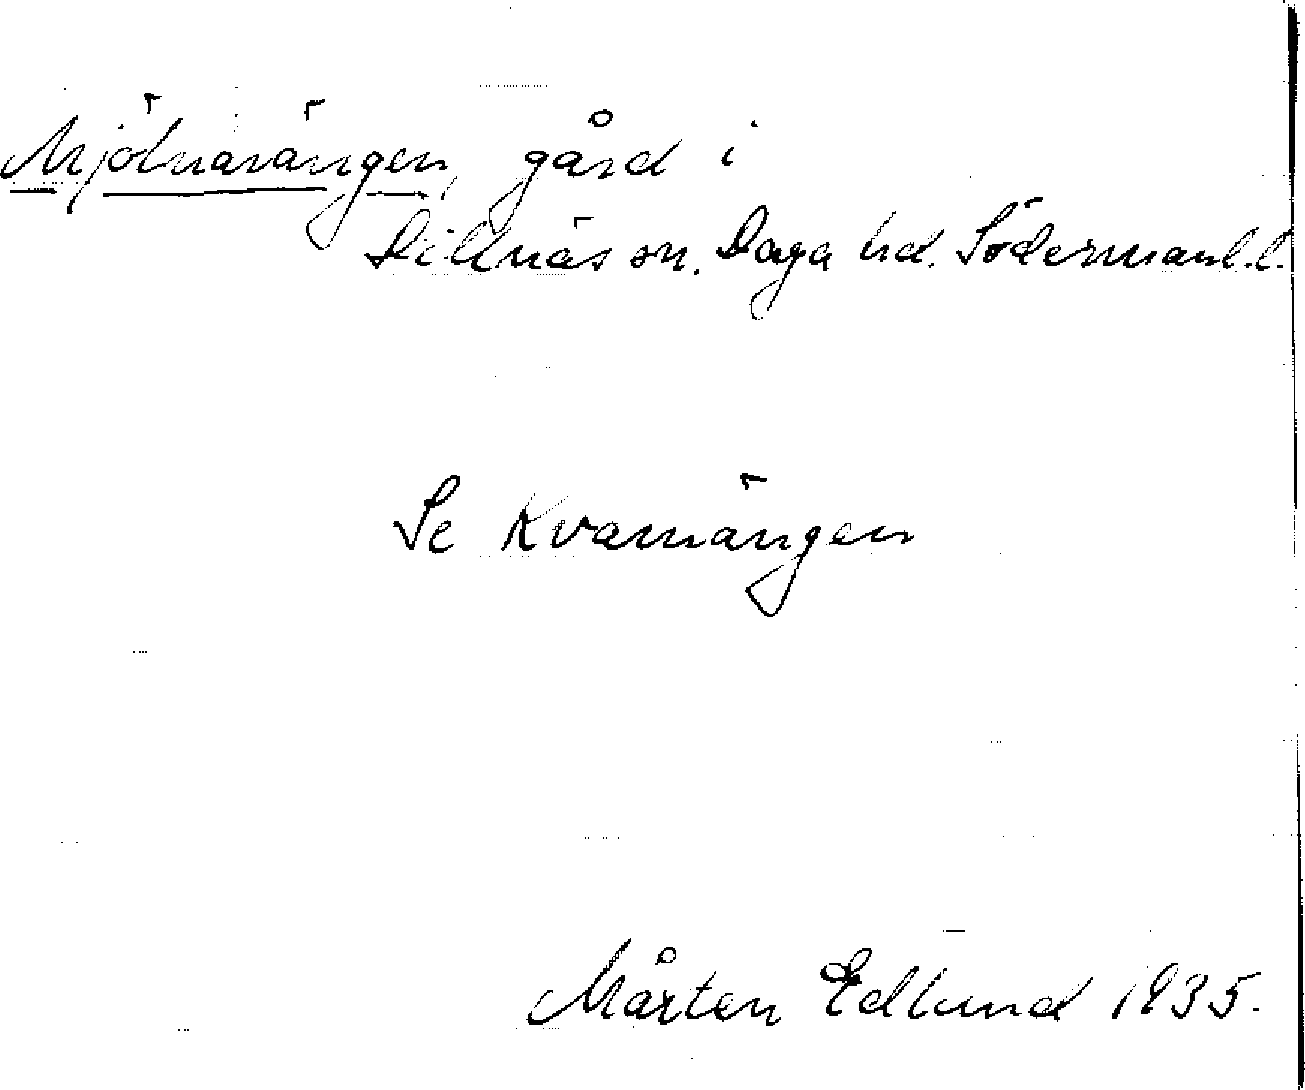 Mjölnarängen, gård i
Dillnäs sn. Daga hd. Södermanl.l.
Se Kvarnängen
Mårten Edlund 1935.